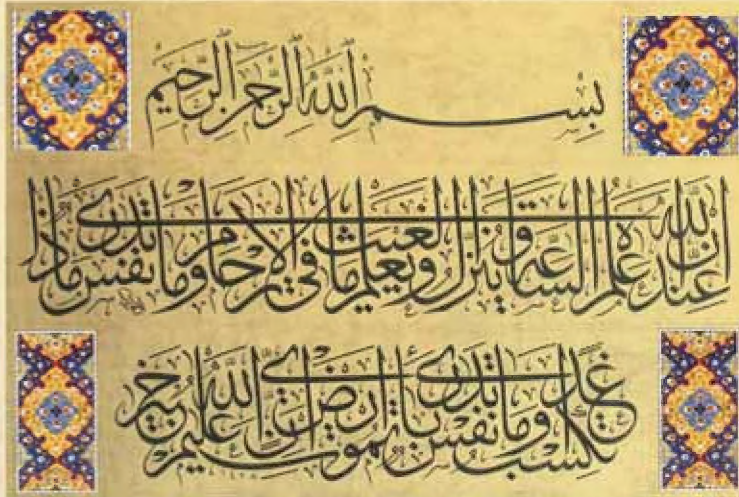 بِسْمِ اللَّهِ الرَّحْمَنِ الرَّحِيمِ
إِنَّ اللَّهَ عِندَهُ عِلْمُ السَّاعَةِ وَيُنَزِّلُ الْغَيْثَ وَيَعْلَمُ مَا فِي الْأَرْحَامِ وَمَا تَدْرِي نَفْسٌ مَّاذَا
تَكْسِبُ غَدًا وَمَا تَدْرِي نَفْسٌ بِأَيِّ أَرْضٍ تَمُوتُ إِنَّ اللَّهَ عَلِيمٌ خَبِيرٌ